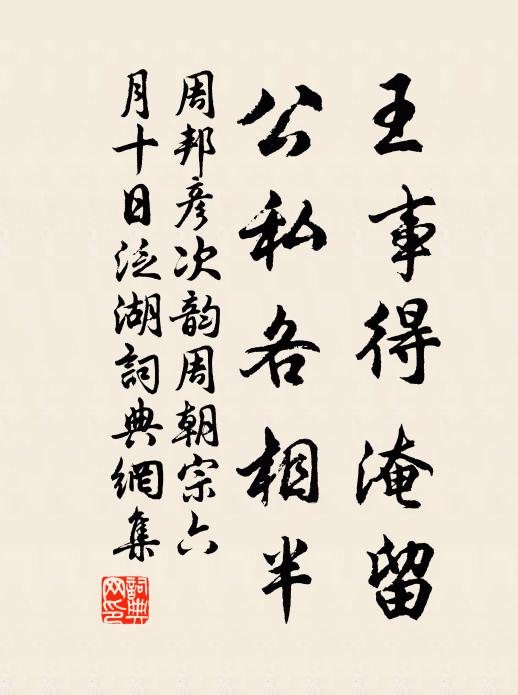 王事得淹留
公私各相半
周邦彦次韵周朝宗六
月十日泛湖詞典網集
詞典
网印